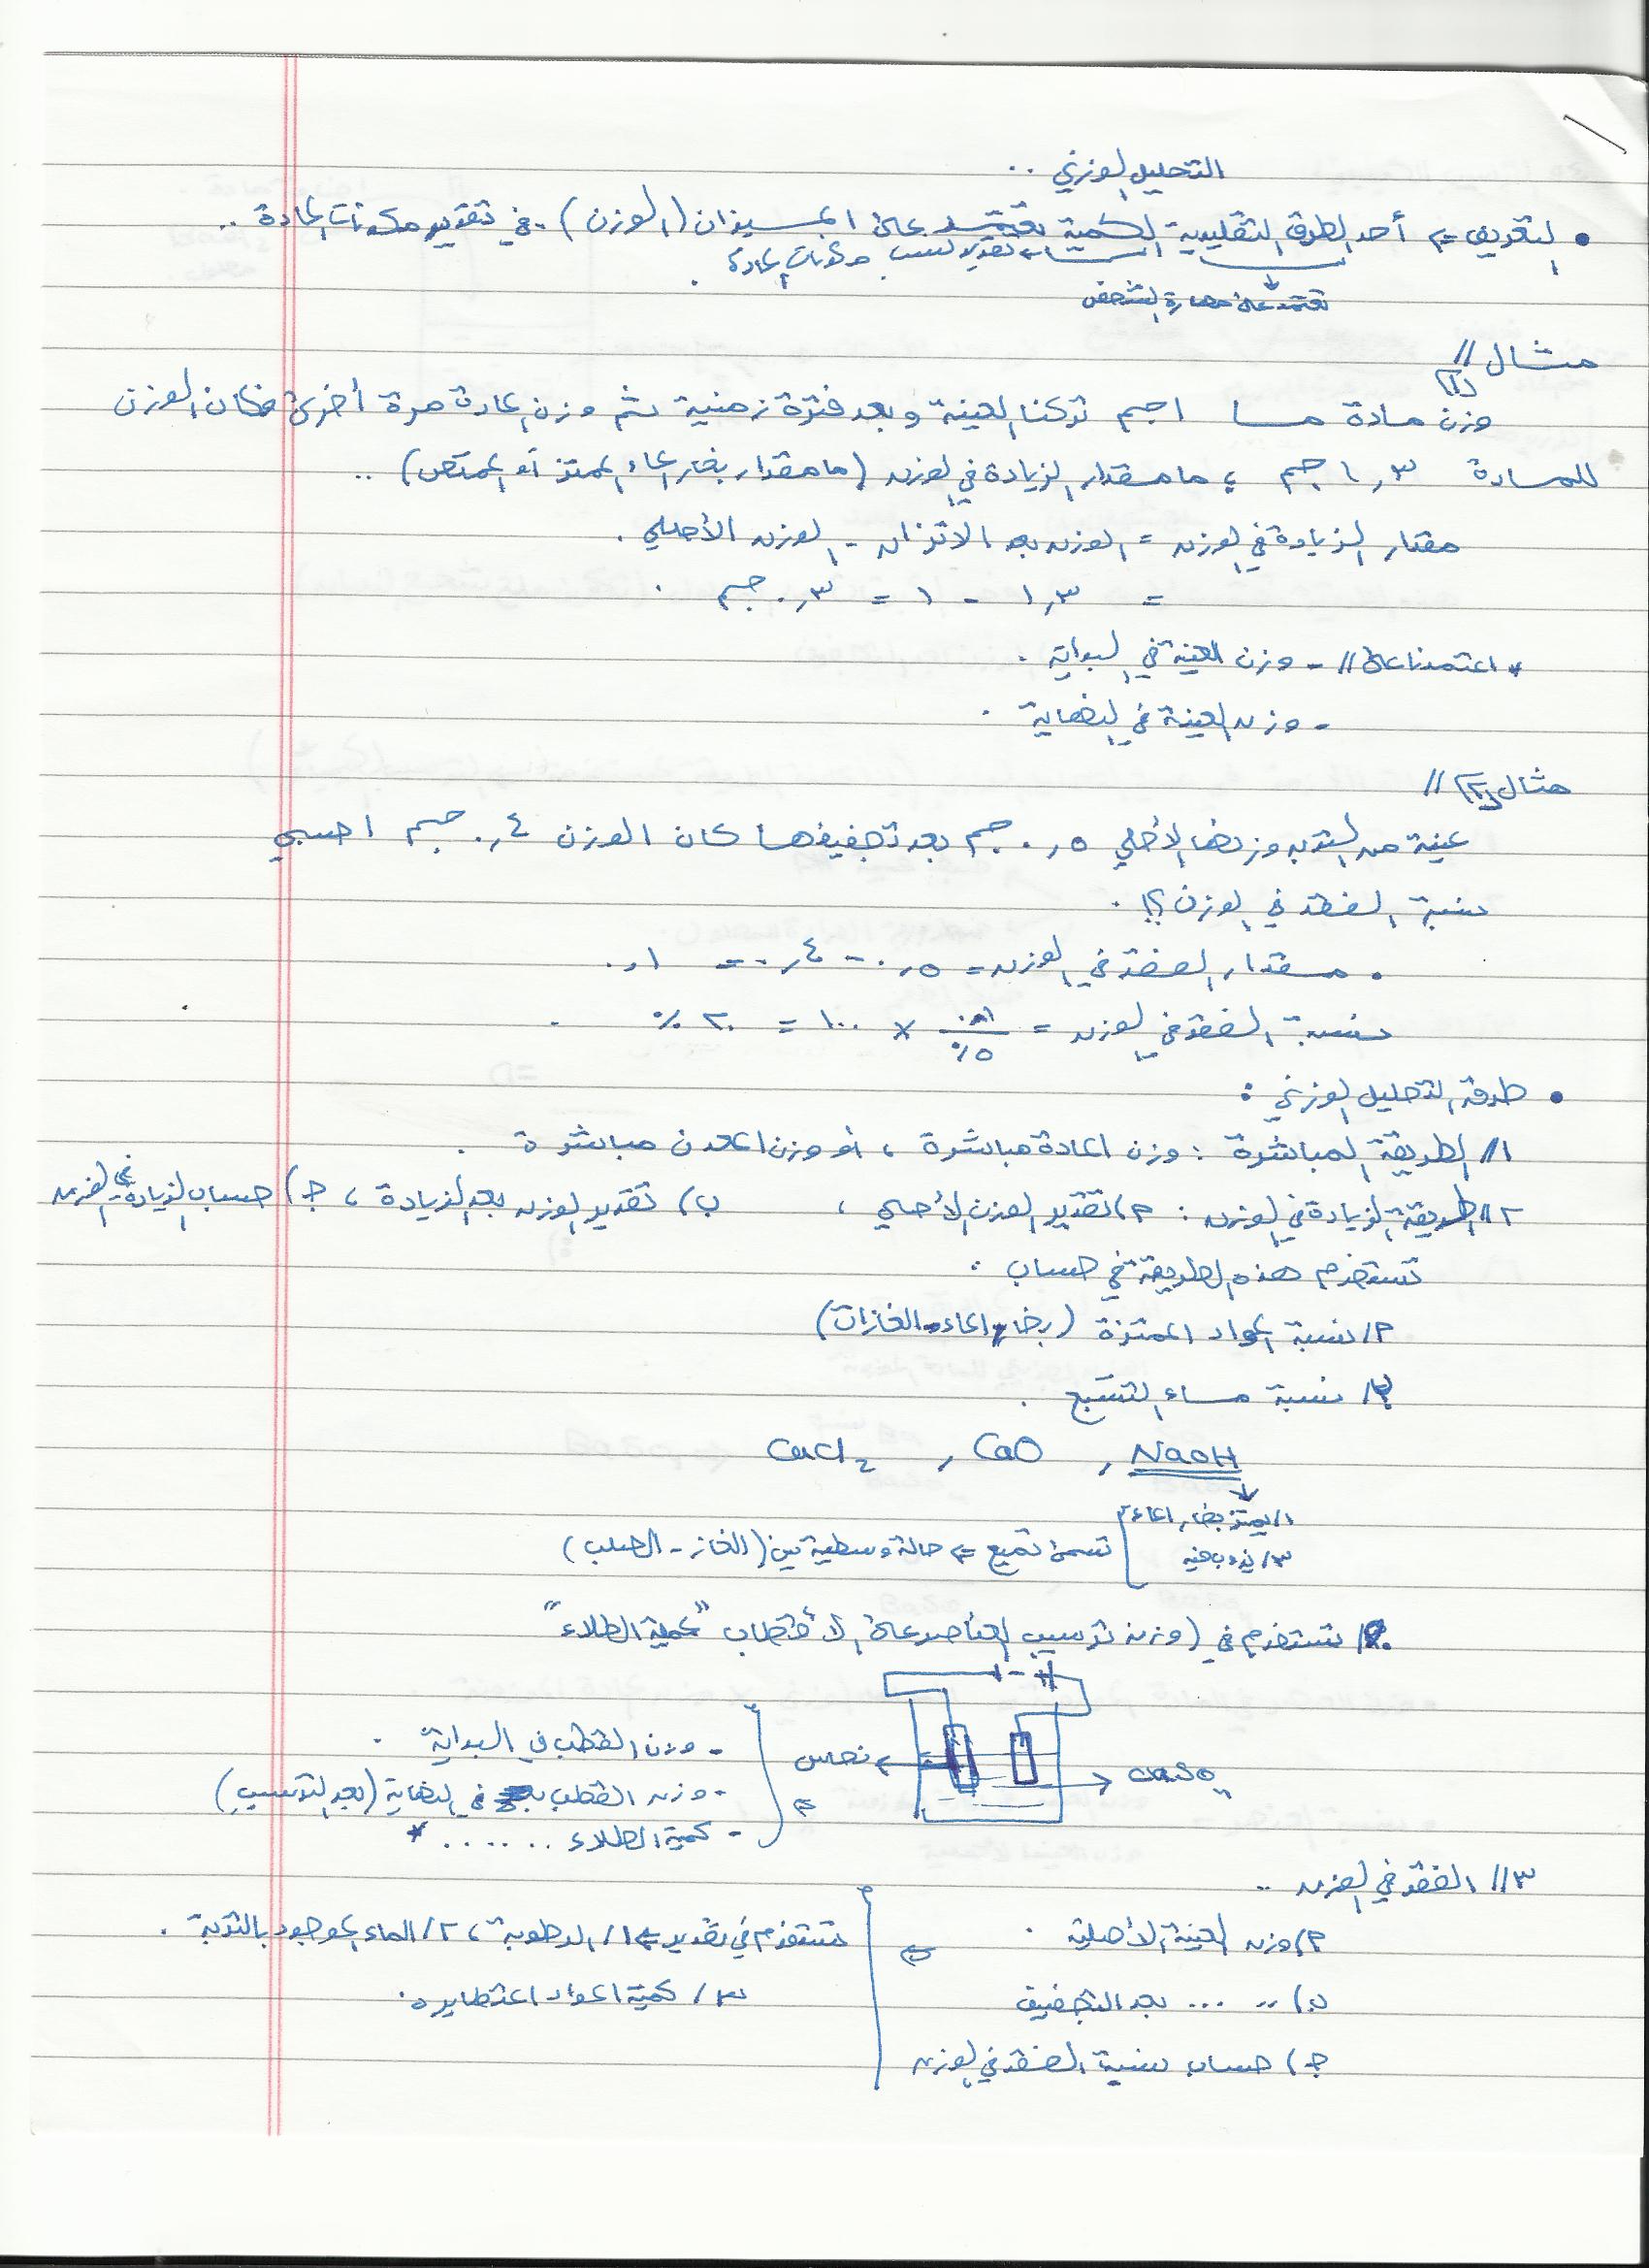 التحليل الوزني ..
• التعريف ⇐ أحد الطرق التقليدية الكمية يعتمد على الميزان (الوزن) في تقدير مكونات المادة ..
تقدير نسب مكونات المادة .
تعتمد على مهارة الشخص
مثال (١) //
وزن مادة ما ١ جم تركنا العينة وبعد فترة زمنية ثم وزن المادة مرة أخرى فكان الوزن
للمادة ١,٣ جم ؛ ما مقدار الزيادة في الوزن (ما مقدار بخار الماء الممتز أو الممتص) ..
مقدار الزيادة في الوزن = الوزن بعد الاتزان - الوزن الأصلي .
= ١,٣ - ١ = ٠,٣ جم .
* اعتمدنا على // - وزن العينة في البداية .
- وزن العينة في النهاية .
مثال (٢) //
عينة من التربة وزنها الأصلي ٠,٥ جم بعد تجفيفها كان الوزن ٠,٤ جم احسبي
نسبة الفقد في الوزن ؟! .
• مقدار الفقد في الوزن = ٠,٥ - ٠,٤ = ٠,١
نسبة الفقد في الوزن = ٠,١ / ٠,٥ × ١٠٠ = ٢٠ % .
• طرق التحليل الوزني :
١// الطريقة المباشرة : وزن المادة مباشرة ، أو وزن المعدن مباشرة .
٢// طريقة الزيادة في الوزن : ٩) تقدير الوزن الأصلي ، ب) تقدير الوزن بعد الزيادة ، جـ) حساب الزيادة في الوزن
تستخدم هذه الطريقة في حساب :
٩/ نسبة المواد الممتزة (بخار الماء - الغازات)
ب/ نسبة ماء التشبع .
NaOH , CaO , CaCl₂
١/ يمتز بخار الماء
٢/ يذوب فيه
تسمى تميع ⇐ حالة وسطية بين (الغاز - الصلب)
تستخدم في (وزن ترسيب العناصر على الأقطاب "كمية الطلاء"
+ -
نحاس
CuSO₄
- وزن القطب في البداية .
- وزن القطب في النهاية (بعد الترسيب)
- كمية الطلاء ....... *
٣// الفقد في الوزن ..
٩) وزن العينة الأصلية .
ب) ,, ... بعد التجفيف
جـ) حساب نسبة الفقد في الوزن
تستخدم في تقدير ⇐ ١/ الرطوبة ، ٢/ الماء الموجود بالتربة .
٣/ كمية المواد المتطايره .